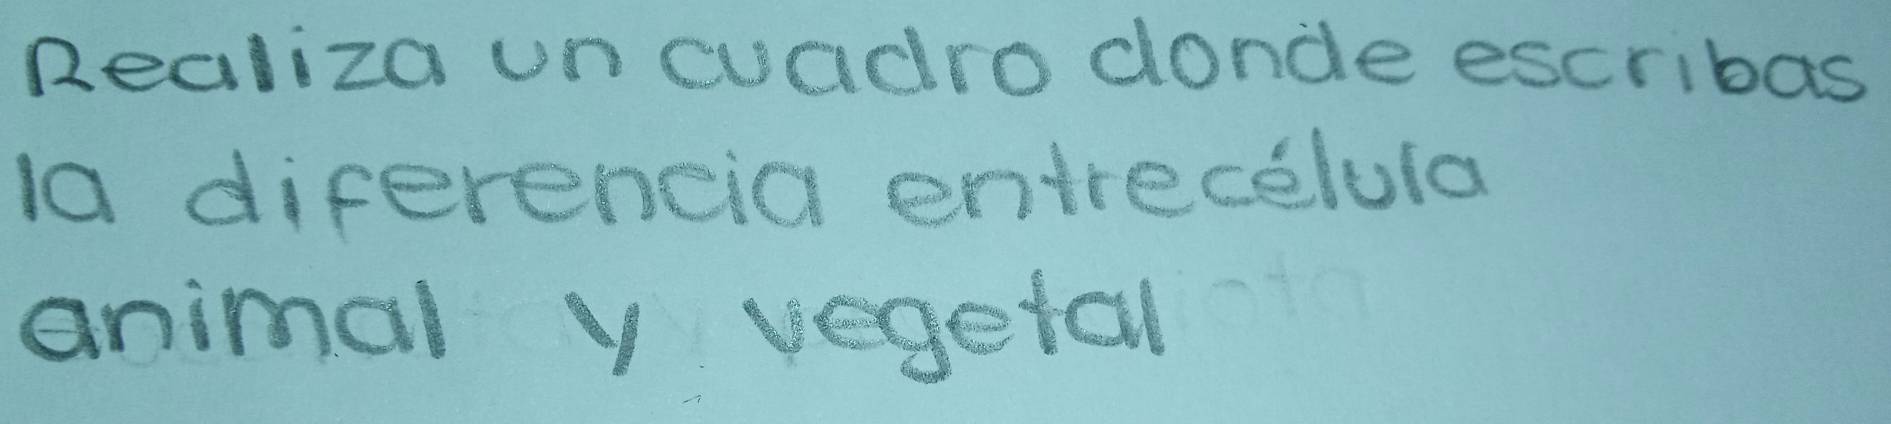 Realiza un cuadro donde escribas
la diferencia entrecélula
animal y vegetal